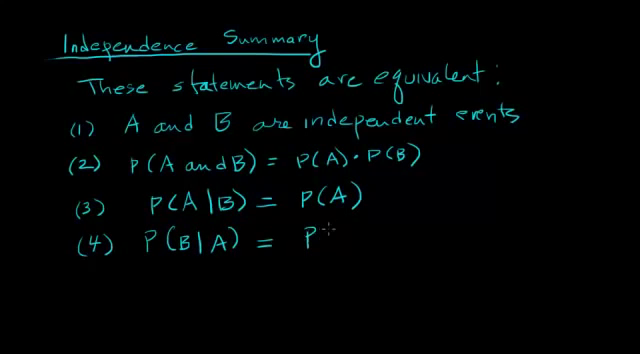 Independence Summary
These statements are equivalent:
(1) A and B are independent events
(2) P(A and B) = P(A) · P(B)
(3) P(A|B) = P(A)
(4) P(B|A) = P